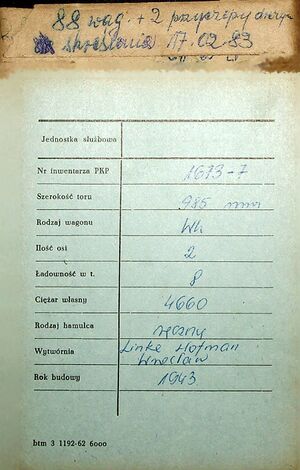 88 wag. + 2 przyczepy
skreślenia 17.02.83
Jednostka służbowa
Nr inwentarza PKP 1673-7
Szerokość toru 985 mm
Rodzaj wagonu Wk
Ilość osi 2
Ładowność w t. 8
Ciężar własny 4660
Rodzaj hamulca ręczny
Wytwórnia Linke Hofman
Wrocław
Rok budowy 1943
btm 3 1192-62 6000